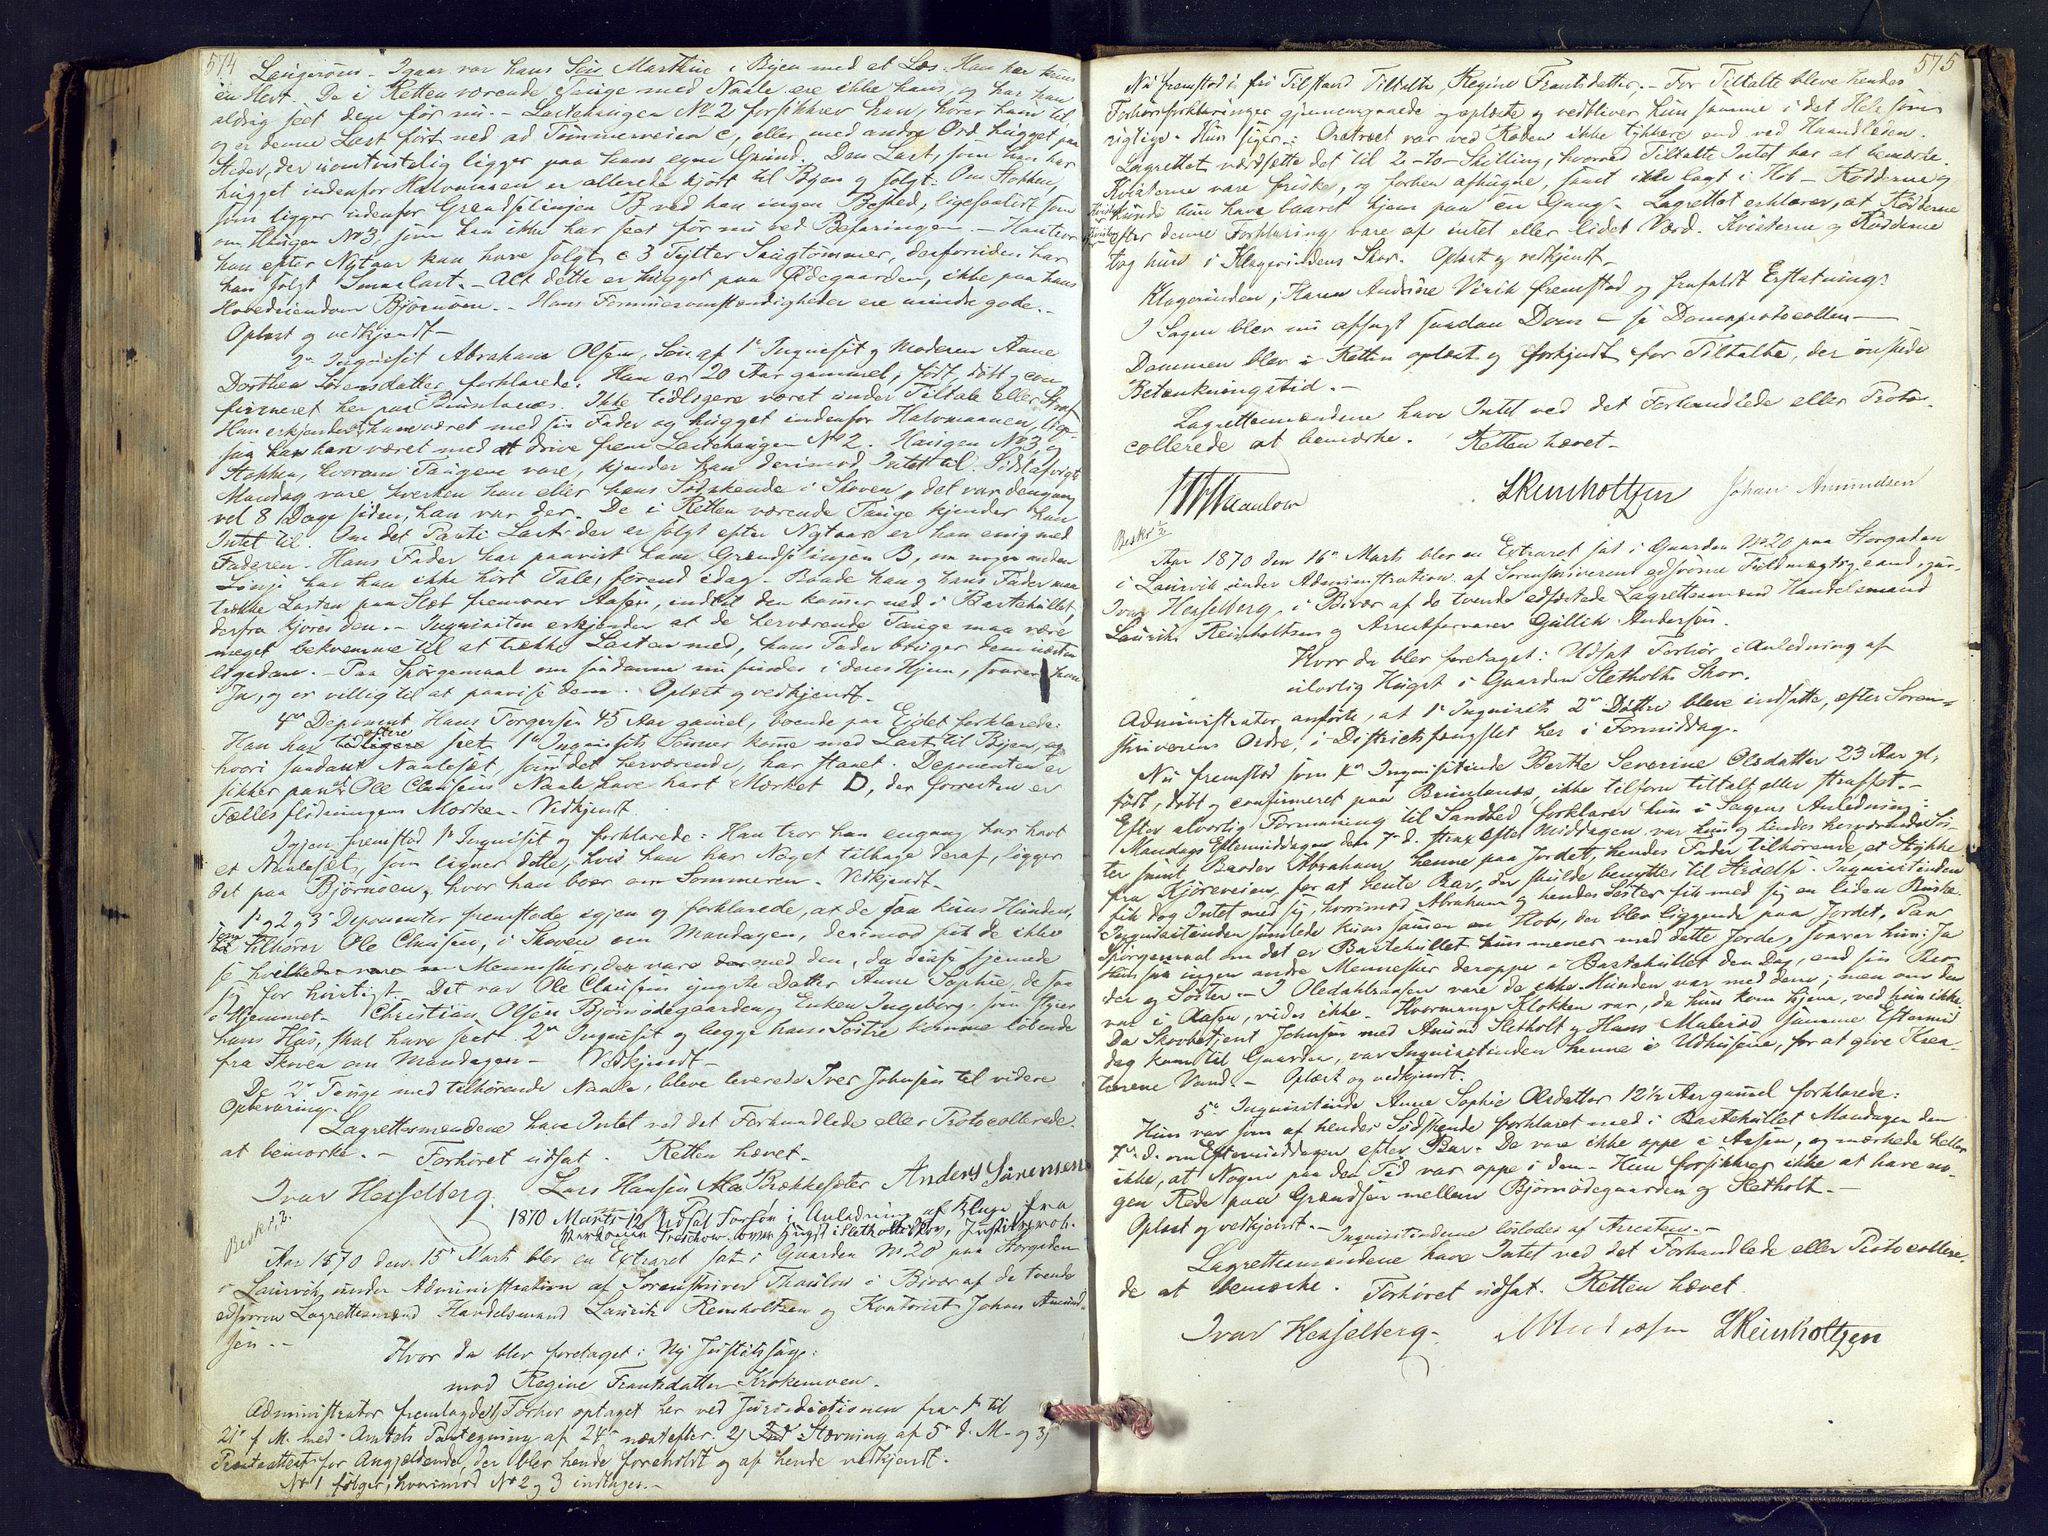 574
Langerønn. Igaar var hans Søn Marthin i Byen med et Læs. Han har kuns
en Hest. De i Retten værende Tange med Naale ere ikke hans, og har han
aldrig seet dem før nu. - Lastehaugen No 2 forsikkrer han, hører ham til
og er denne Last ført ned ad Tømmerveien C, eller med andre Ord hugget paa
Steder, der uomtvistelig ligger paa hans egen Grund. Den Last, som han har
hugget indenfor Halvmaanen er allerede kjørt til Byen og solgt. Om Stokken,
som ligger udenfor Grændselinjen B ved han ingen Besked, ligesaalidt som
om Haugen No 3, som han ikke har seet før nu ved Befaringen. - Han tror
han efter Nytaar kan have solgt c 3 Tylter Saugtømmer, desforuden har
han solgt Smaalast. - Alt dette er hugget paa Ødegaarden, ikke paa hans
Hovedeiendom Bjørnøen. - Hans Formuesomstændigheder ere mindre gode. -
Oplæst og vedkjendt. -
2n Inquisit Abraham Olsen, Søn af 1e Inquisit og Moderen Anne
Dorthea Sørensdatter, forklarede: Han er 20 Aar gammel, født, døbt og con-
firmeret her paa Brunlanes. Ikke tidligere været under Tiltale eller Straf.
Han erkjender at han været med sin Fader og hugget indenfor Halvmaanen, lige-
saa har han været med at drive frem Lastehaugen No 2. Haugen No 3 og
Stokken, hvorom Tangene vare, kjender han derimod Intet til. Sidstafvigte
Mandag vare hverken han eller hans Sødskende i Skoven, det var dengang
vel 8 Dage siden, han var der. De i Retten værende Tange kjender han
Intet til. Om det Parti Last, der er solgt efter Nytaar er han enig med
Faderen. - Hans Fader har paavist ham Grændselinjen B, om nogen anden
Linje har han ikke hørt Tale, førend idag. - Baade han og hans Fader maa
trække Lasten paa Slæt fremover Aasen, indtil den kommer ned i Bastehullet,
derfra kjøres den. - Inquisiten erkjender at de herværende Tange maa være
meget bekvemme til at trække Lasten med, hans Fader bruger dem næsten
ligedan. - Paa Spørgsmaal om saadanne nu findes i deres Hjem, svarer han
Ja, og er villig til at paavise dem. Oplæst og vedkjendt. -
4de Deponent Hans Torgersen 45 Aar gammel, boende paa Eidet forklarede:
Han har tidligere ofte seet 1e Inquisits Sønner komme med Last til Byen, og
hvori saadant Naaleset som det herværende, har staaet. Deponenten er
sikker paa at Ole Clausens Naale have havt Mærket D, der forresten er
Fællesflødningens Mærke. - Vedkjendt.
Igjen fremstod 1e Inquisit og forklarede: Han tror han engang har havt
et Naaleset, som ligner dette, hvis han har Noget tilbage deraf, ligger
det paa Bjørnøen, hvor han boer om Sommeren. - Vedkjendt. -
1e og 2 og 3e Deponenter fremstode igjen og forklarede, at de saa kuns Hunden,
som tilhører Ole Clausen, i Skoven om Mandagen, derimod saa de ikke
se hvilke Mennesker, der vare med den, da disse fjernede
sig for hurtigt. Det var Ole Clausens yngste Datter Anne Sophie, de saa
i Hjemmet. - Christian Olsen Bjørnødegaarden og Enken Ingeborg som i
hans Hus, skal have seet 2n Inquisit og begge hans Søstre komme løbende
fra Skoven om Mandagen. - Vedkjendt. -
De 2n Tange med tilhørende Naale, bleve leverede Iver Johnsen til videre
Opbevaring. -
Lagrettesmændene have Intet ved det Forhandlede eller Protocollerede
at bemærke. - Forhøret udsat. Retten hævet. -
Ivar Hesselberg. Lars Hansen Braekkesæter Anders Sørensen
Beskr. 2.
1870 Marts 12 Udsat Forhør i Anledning af Klage fra
Treschow over Hugst i Sletholt Skov, Justitsprot.
Aar 1870 den 15e Marts blev en Extraret sat i Gaarden No 20 paa Storgaden
i Laurvik under Administration af Sorenskriver Thaulow i Bivær af de tvende
edsvorne Lagrettesmænd Handelsmand Laurik Reinholtzen og Kontorist Johan Amund-
sen. -
Hvor da blev foretaget: Ny Justitssag:
mod Regine Frantsdatter Krokemoen.
Administrator fremlagde 1) Forhør optaget her ved Jurisdictionen fra 1e til
21e f. M. med Amtets Paategning af 24e næstefter. 2) Stævning af 5e d. M. og 3)
Præsteattest for Angjeldende, der blev hende foreholdt og af hende vedkjendt. -
No 1 følger, hvorimod No 2 og 3 indtages. -
575
Nu fremstod i fri Tilstand Tiltalte, Regine Frantsdatter. - For Tiltalte bleve hendes
Forhørsforklaringer gjennemgaaede og oplæste og vedbliver hun samme i det Hele som
rigtige. Hun siger: Oretræet var ved Roden ikke tykkere end ved Haandleden.
Lagrettet værdsætte det til 2 - to - Skilling, hvorved Tiltalte Intet har at bemærke.
Kvisterne vare friske, og forhen afhugne, samt ikke lagt i Hob. - Rødderne og
Kvister kunde hun have baaret hjem paa en Gang. - Lagrettet erklærer, at Rødderne
efter denne Forklaring bare af intet eller lidet Værd. Kvisterne og Rødderne
tog hun i Klagerindens Skov. Oplæst og vedkjendt. -
Klagerinden, Karen Andrine Virik fremstod og frafaldt Erstatning.
I Sagen blev nu afsagt saadan Dom - se Domsprotocollen -
Dommen blev i Retten oplæst og forkyndt for Tiltalte, der ønskede
Betænkningstid. -
Lagrettesmændene have Intet ved det Forhandlede eller Proto-
collerede at bemærke. Retten hævet. -
Thaulow LReinholtzen Johan Amundsen
Beskr. 2
Aar 1870 den 16e Marts blev en Extraret sat i Gaarden No 20 paa Storgaden
i Laurvik under Administration af Sorenskriverens edsvorne Fuldmægtig cand. jur.
Ivar Hesselberg, i Bivær af de tvende edfæstede Lagrettesmænd Handelsmand
Laurik Reinholtzen og Arrestforvarer Gullik Andersen.
Hvor da blev foretaget: Udsat Forhør i Anledning af
ulovlig Hugst i Gaarden Sletholts Skov.
Administrator anførte, at 1e Inquisits 2e Døttre bleve indsatte, efter Soren-
skriverens Ordre, i Districtsfængslet her i Formiddag. -
Nu fremstod som 4n Inquisitinde Berthe Severine Olsdatter 23 Aar gl,
født, døbt og confirmeret paa Brunlanes, ikke tilforn tiltalt eller straffet. -
Efter alvorlig Formaning til Sandhed forklarer hun i Sagens Anledning:
Mandags Eftermiddagen den 7e d. strax efter Middagen var hun og hendes herværende Sø-
ster samt Broder Abraham henne paa Jordet, hendes Fader tilhørende, et Stykke
fra Kjøreveien, for at hente Bar, der skulde benyttes til Strøelse. Inquisitinden
fik dog Intet med sig, hvorimod Abraham og hendes Søster fik med sig en liden Buske.
Inquisitinden samlede kuns sammen en Hob, der blev liggende paa Jordet. Paa
Spørgsmaal om det er Bastehullet hun mener med dette Jorde, svarer hun: Ja
Hun saa ingen andre Mennesker deroppe i Bastehullet den Dag, end sin Bro-
der og Søster. - I Oledahlaasen vare de ikke. Hunden var med dem; men om den
var i Aasen, vides ikke. Hvormange Klokken var, da hun kom hjem, ved hun ikke.
Da Skovbetjent Johnsen med Amund Sletholt og Hans Malerød samme Eftermid-
dag kom til Gaarden, var Inquisitinden henne i Udhusene, for at give Krea-
turene Vand. - Oplæst og vedkjendt.
5e Inquisitinde Anne Sophie Olsdatter 12½ Aar gammel forklarede:
Hun var som af hendes Sødskende forklaret med i Bastehullet Mandagen den
7e d. om Eftermiddagen efter Bar. De vare ikke oppe i Aasen, og mærkede heller
ikke, at Nogen paa den Tid var oppe i den. - Hun forsikkrer ikke at have no-
gen Rede paa Grændsen mellem Bjørnødegaarden og Sletholt. -
Oplæst og vedkjendt. - Inquisitinderne løslodes af Arresten. -
Lagrettesmændene have Intet ved det Forhandlede eller Protocollere-
de at bemærke. Forhøret udsat. Retten hævet.
Ivar Hesselberg. LReinholtzen